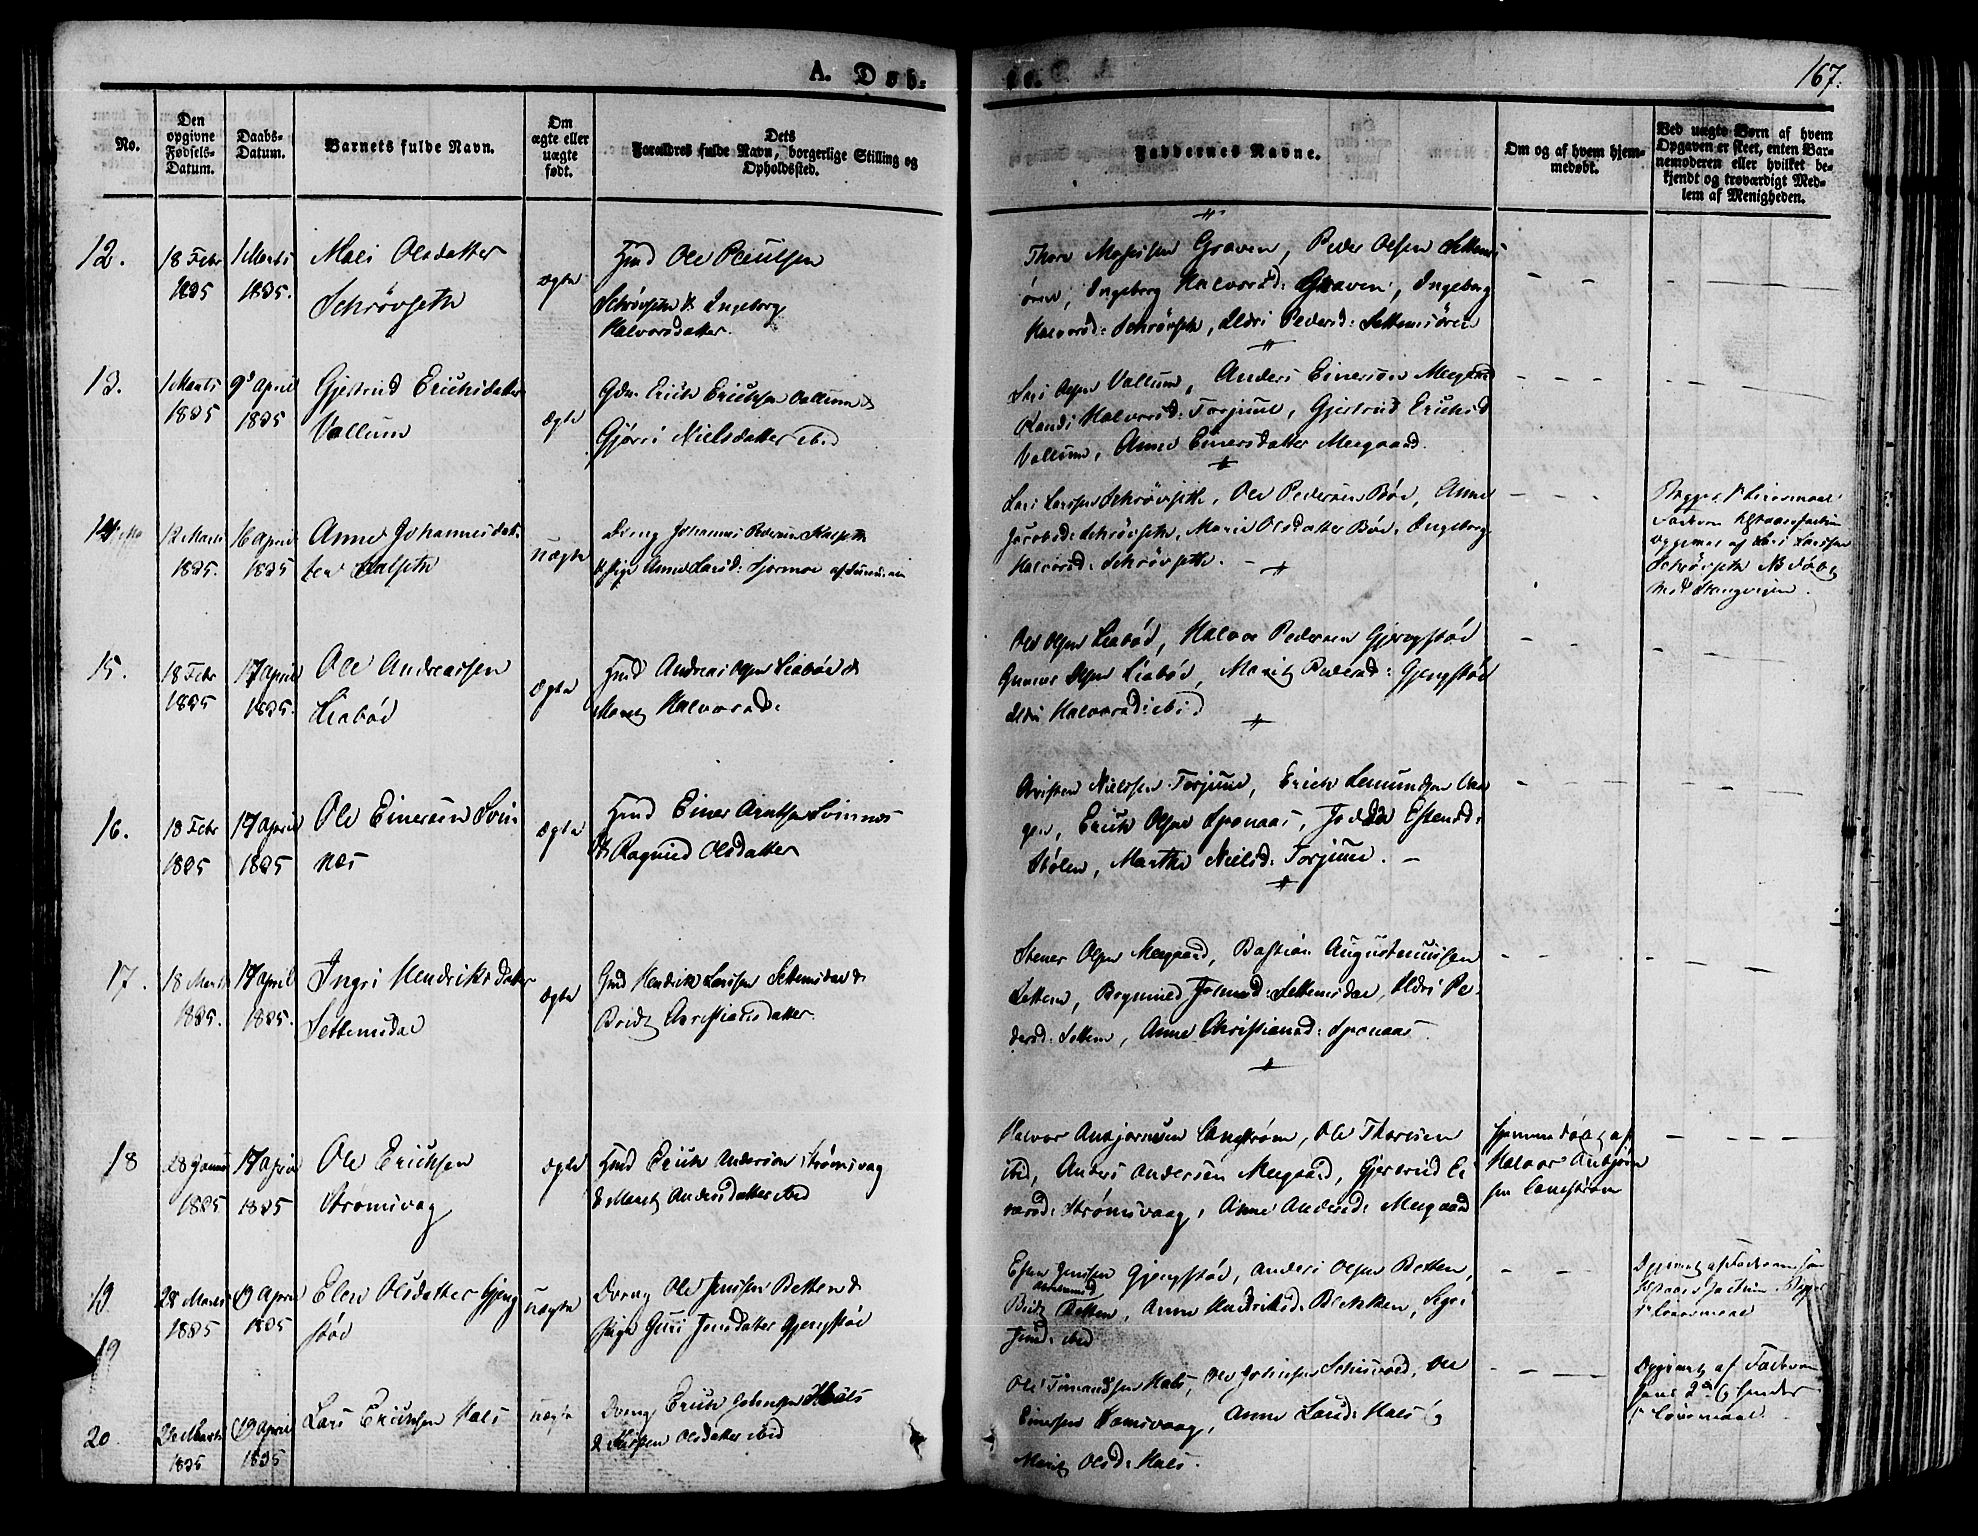 A. Døb-
te.
167.
No.
Den opgivne Fødsels-Datum.
Daabs-Datum.
Barnets fulde Navn.
Om ægte eller uægte født.
Dets Forældres fulde Navn, borgerlige Stilling og Opholdssted.
Faddernes Navne.
Om og af hvem hjemmedøbt.
Ved uægte Børn af hvem Opgaven er skeet, enten Barnemoderen eller hvilket bekjendt og troværdigt Medlem af Menigheden.
12.
18 Febr
1835
1 Marts
1835.
Mali Olsdatter
Schrövseth
ægte
Hmd Ole
Schrövseth & Ingeborg
Halvorsdatter.
Graven, Peder Olsen Settems
ören, Ingeborg Halvorsd: Graven, Ingeborg
Halvorsd: Schrövseth, Eldri Pedersd: Settemsören
13.
1 Marts
1835
9d April
1835
Gjertrud Erichsdatter
Vallum
ægte
Gdm. Erich Erichsen Vallum &
Gjörri Nielsdatter ibid
Lars Olsen Vallum, Anders Einersen Meegaard
Randi Halvorsd: Torjuul, Gjertrud Erichsd
Vallum, Anne Einersdatter Meegaard.
14
12 Marts
1835.
16 April
1835
Anne Johannesdat-
ter Halseth
uægte
Dreng Johannes Pedersen Halseth
& Pige Anne Larsd:
Lars Larssen Schrövseth, Ole Pedersen Böe, Anne
Jacobsd: Schrövseth, Marit Olsdatter Böe, Ingeborg
Halvorsd: Schrövseth.
Begges 1ste Leiermaal
opgivet af Lars Larssen
Schrövseth NB döbt
ved Stangvigen.
15.
18 Febr
1835
17 April
1835.
Ole Andreassen
Liabød
ægte
Hmd Andreas Olsen Liabød &
Marit Halvorsd:
Ole Olsen Liabød, Halvor Pedersen Gjengstød
Gunner Olsen Liabød, Marit Pedersd: Gjengstød
Eldri Halvorsd: ibid
16.
18 Febr
1835
17 April
1835
Ole Einersen Svin
næs
ægte
Hmd Einer Arntsen Svinnæs
& Ragnild Olsdatter
Christen Nielssen Torjuul, Erich
gen, Erich Olsen Sponaas, Estensd:
Stölen, Marthe Nielsd: Torjuul.
17.
18 Marts
1835.
17 April
1835.
Ingri Hendriksdatter
Settemsdal
ægte
Gmd Hendrik Larssen Settemsdal &
Brit Christiansdatter.
Stener Olsen Meegaard, Bastian Augustinussen
Settem, Settemsdal, Eldri Pe-
dersd: Settem, Anne Christiansd: Sponaas
18
28 Januar
1835
17 April
1835
Ole Erichsen
Strömsvag
ægte
Hmd Erich Andersen Strömsvag
& Marit Andersdatter ibid
Halvor Anbjörnsen Langström, Ole Thoresen
ibid, Anders Andersen Meegaard, Gjertrud Ei
narsd: Strömsvaag, Anne Andersd: Meegaard
hjemmedöbt af
Halvor Anbjörn
sen Langström
19
28 Marts
1835
19 April
1835
Elen Olsdatter Gjeng
stød
uægte
Dreng Ole Jenssen Betten &
Pige Guri Jonsdatter Gjengstød
Esten Jonssen Gjengstød, Anders Olsen Betten,
Brit Betten, Anne Hendriksd: Bekken, Sigri
Jonsd: ibid
Opgivet af Faderen
1ste Leiermaal
19
20
1835
19 April
1835
Lars Erichsen Hals
uægte
Dreng Erich Johnsen Hals
& Olsdatter ibid
Ole Hals, Ole Johnsen Schisvold, Ole
Einersen Tomsvaag, Anne Larsd: Hals &
Marit Olsd: Hals.
Opgivet af Faderen
Leiermaal